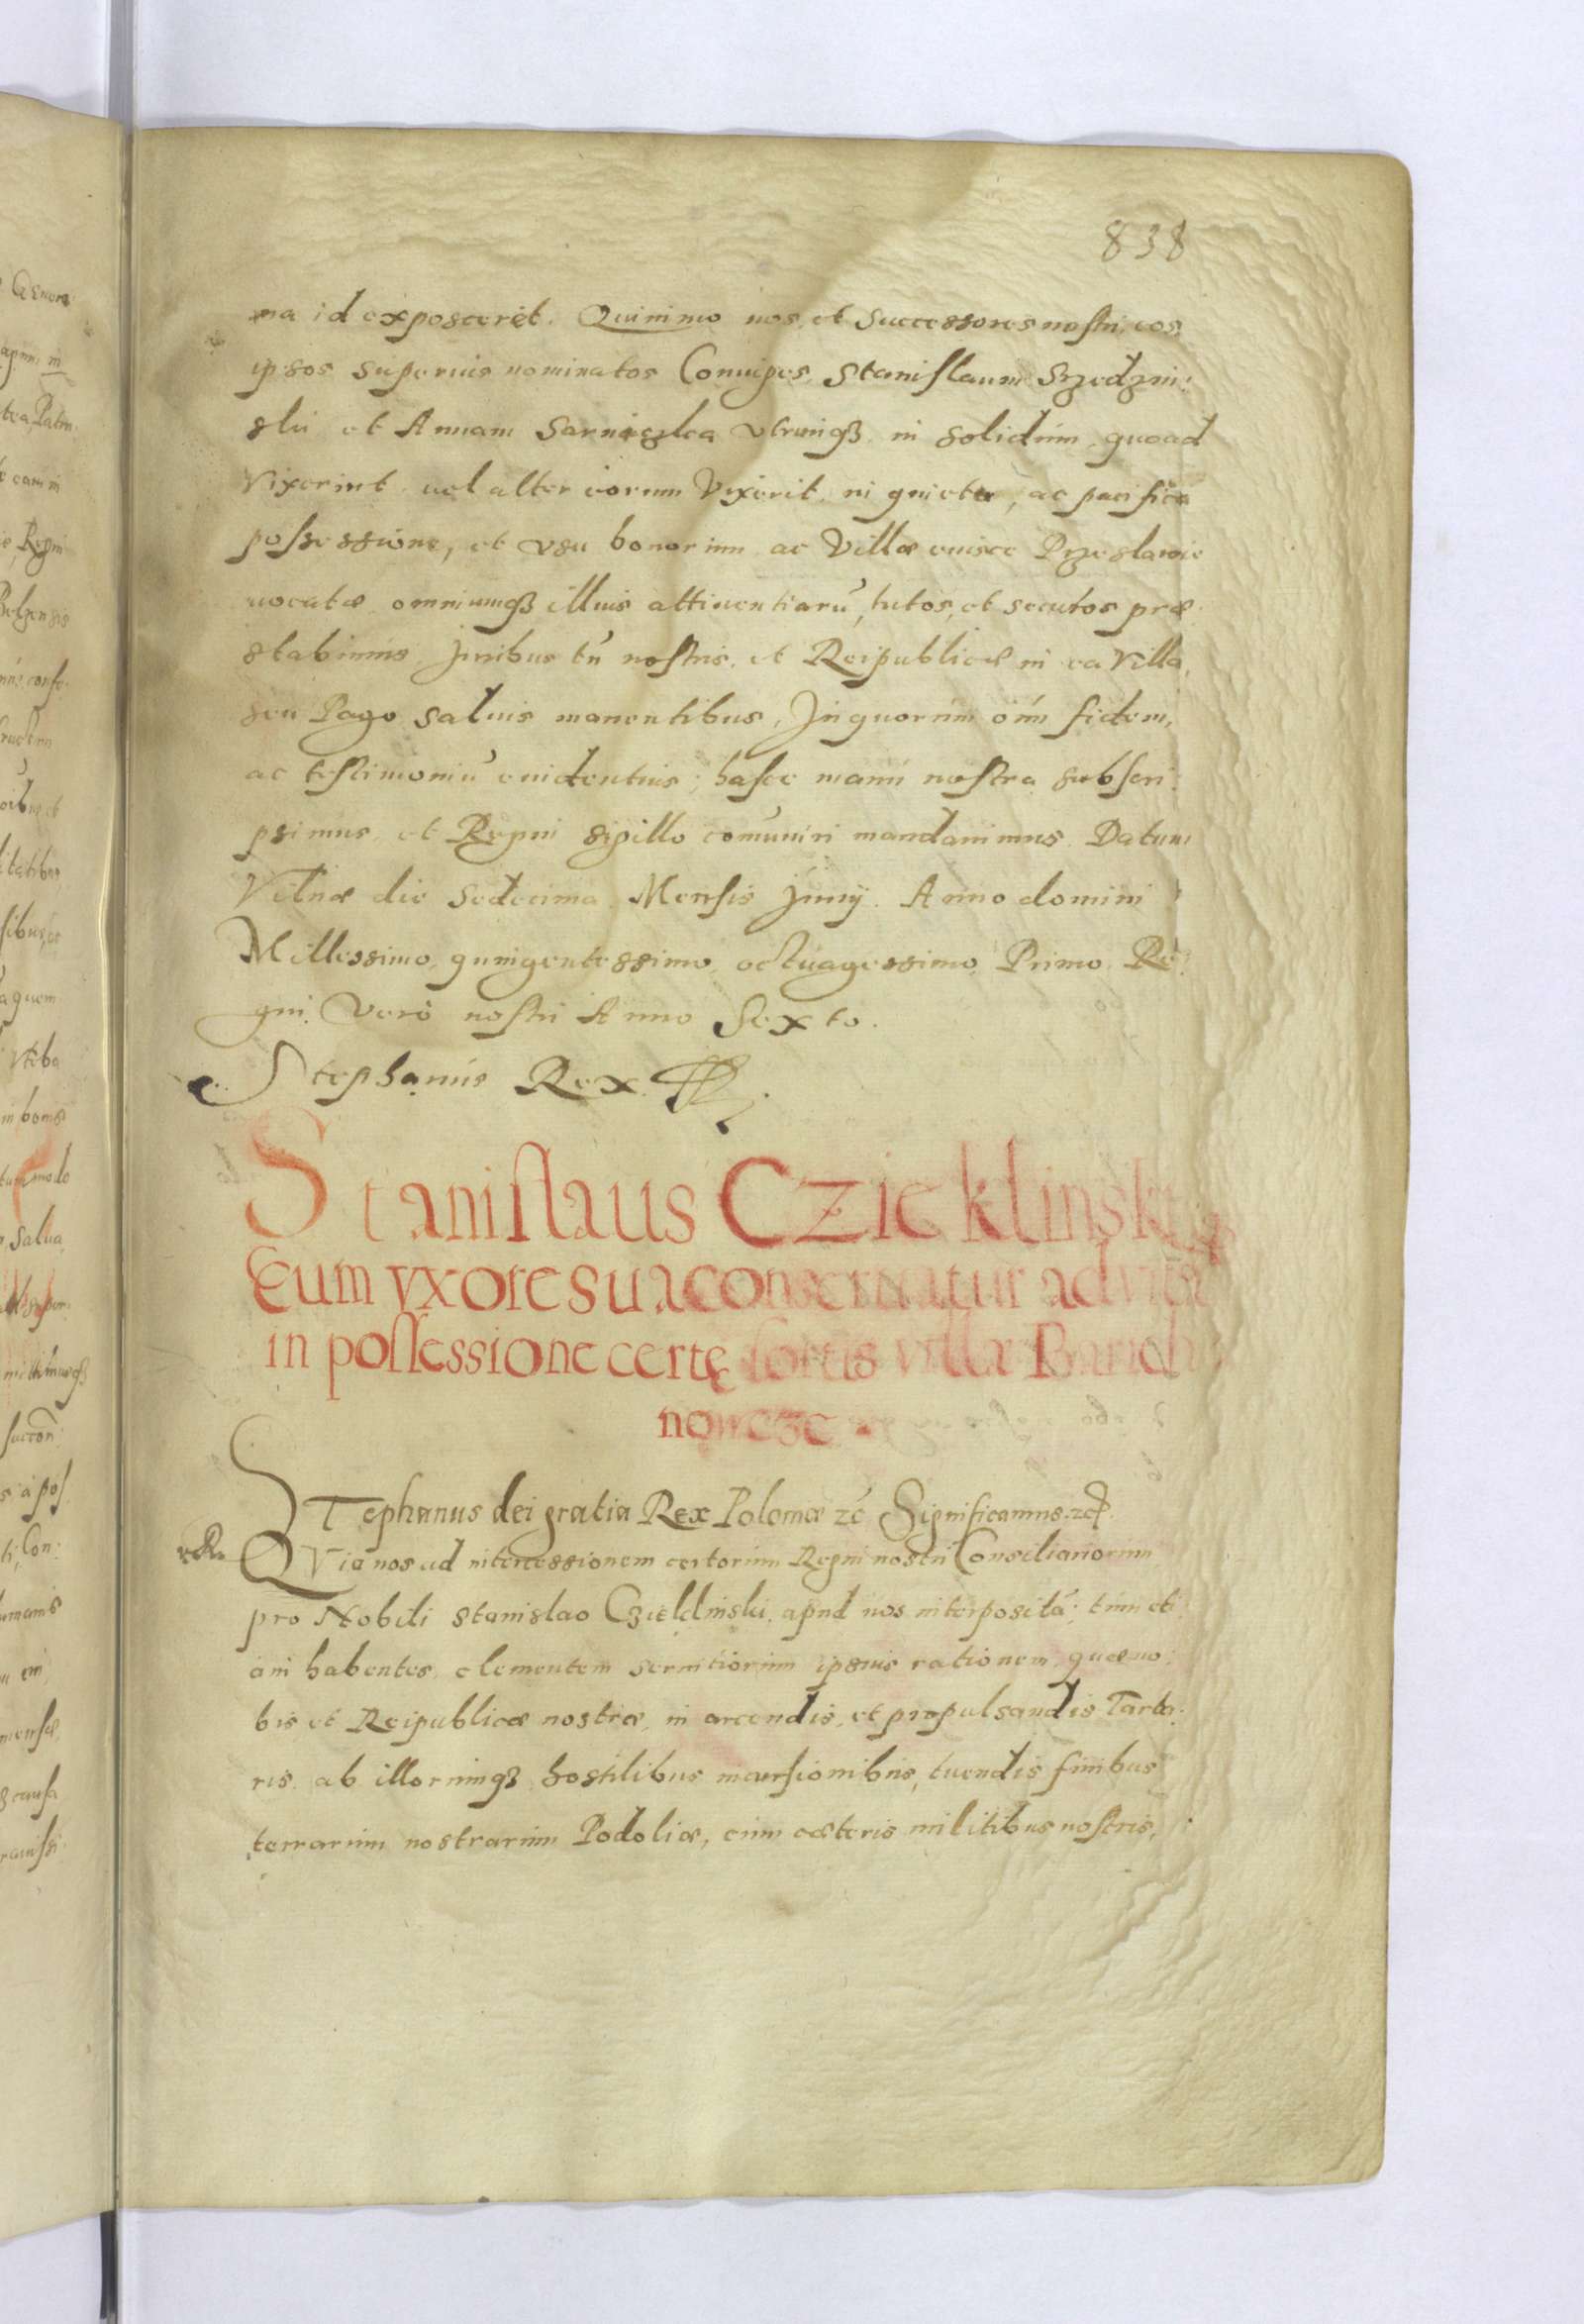 838
na id exposceret. Quinimo nos, et Successores nostri, eos
ipsos superius nominatos Coniuges, Stanislaum Srzedzin:
ski et Annam Sarnigska utrumq3 in solidum, quoad
Vixerint, uel alter eorum Vixerit, in quieta, ac pacifica
possessione, et usu bonorum ac Villæ eiusce Przeslawie
uocatæ omniumq3 illius attinentiarũ, tutos, et securos præ
stabimus. Juribus tñ nostris, et Reipublicæ in ea Villa,
seu Pago saluis manentibus, In quorum oim fidem,
ac testimoniũ euidentius, hasce manu nostra subscri:
psimus, et Regni sigillo comuniri mandauimus. Datum
Vilnæ die Sedecima Mensis Junij. Anno domini
Millessimo, quingentessimo, octuagessimo Primo Re:
gni Vero nostri Anno Sexto.
Stephanus Rex
Stanislaus Czieklinski
Cum vxore sua conseruatur ad vitã
in possessione certę sortis villæ Barich
nowcze
STephanus dei gratia Rex Poloniæ zc̃ Significamus. zc̃
QVia nos ad intercessionem certorum Regni nostri Consiliariorum
pro Nobili Stanislao Czieklinski, apud nos interpositã; tum eti
am habentes clementem seruitiorum ipsius rationem, quæ no:
bis et Reipublicæ nostræ, in arcendis, et propulsandis Tarta:
ris, ab illorumq3 hostilibus incursionibus, tuendis finibus
terrarum nostrarum Podoliæ, cum cæteris militibus nostris,